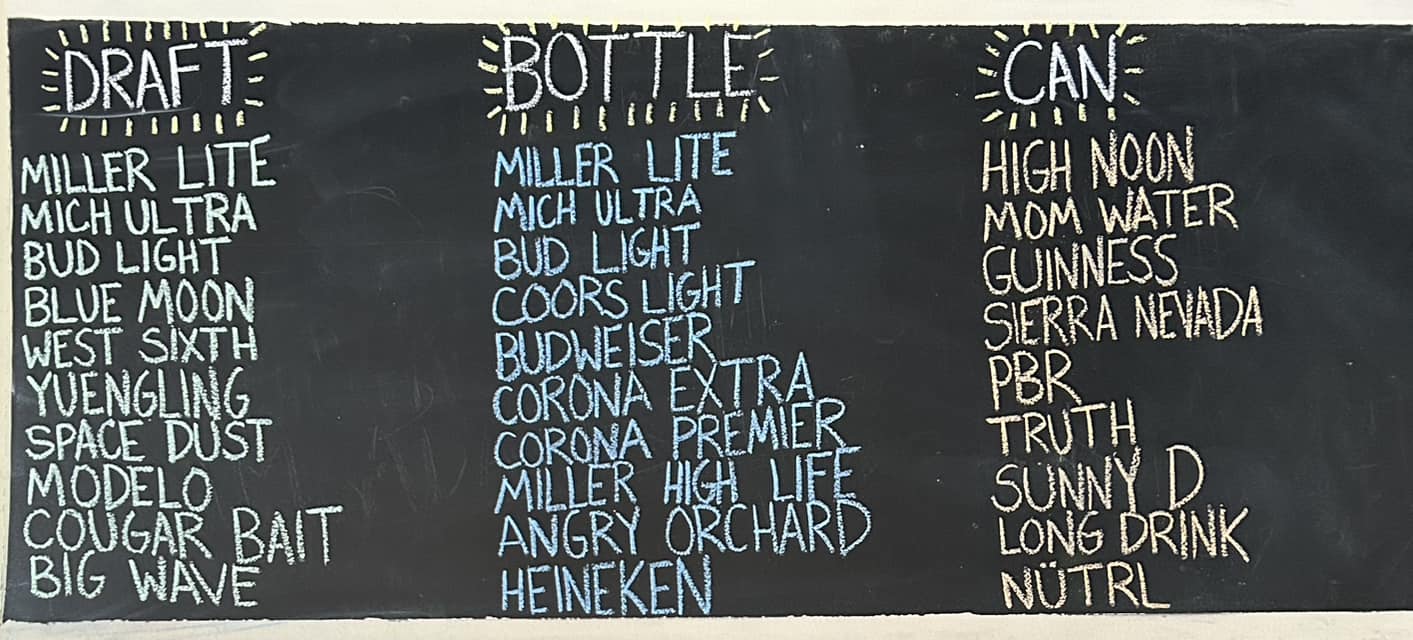 DRAFT
MILLER LITE
MICH ULTRA
BUD LIGHT
BLUE MOON
WEST SIXTH
YUENGLING
SPACE DUST
MODELO
COUGAR BAIT
BIG WAVE
BOTTLE
MILLER LITE
MICH ULTRA
BUD LIGHT
COORS LIGHT
BUDWEISER
CORONA EXTRA
CORONA PREMIER
MILLER HIGH LIFE
ANGRY ORCHARD
HEINEKEN
CAN
HIGH NOON
MOM WATER
GUINNESS
SIERRA NEVADA
PBR
TRUTH
SUNNY D
LONG DRINK
NÜTRL